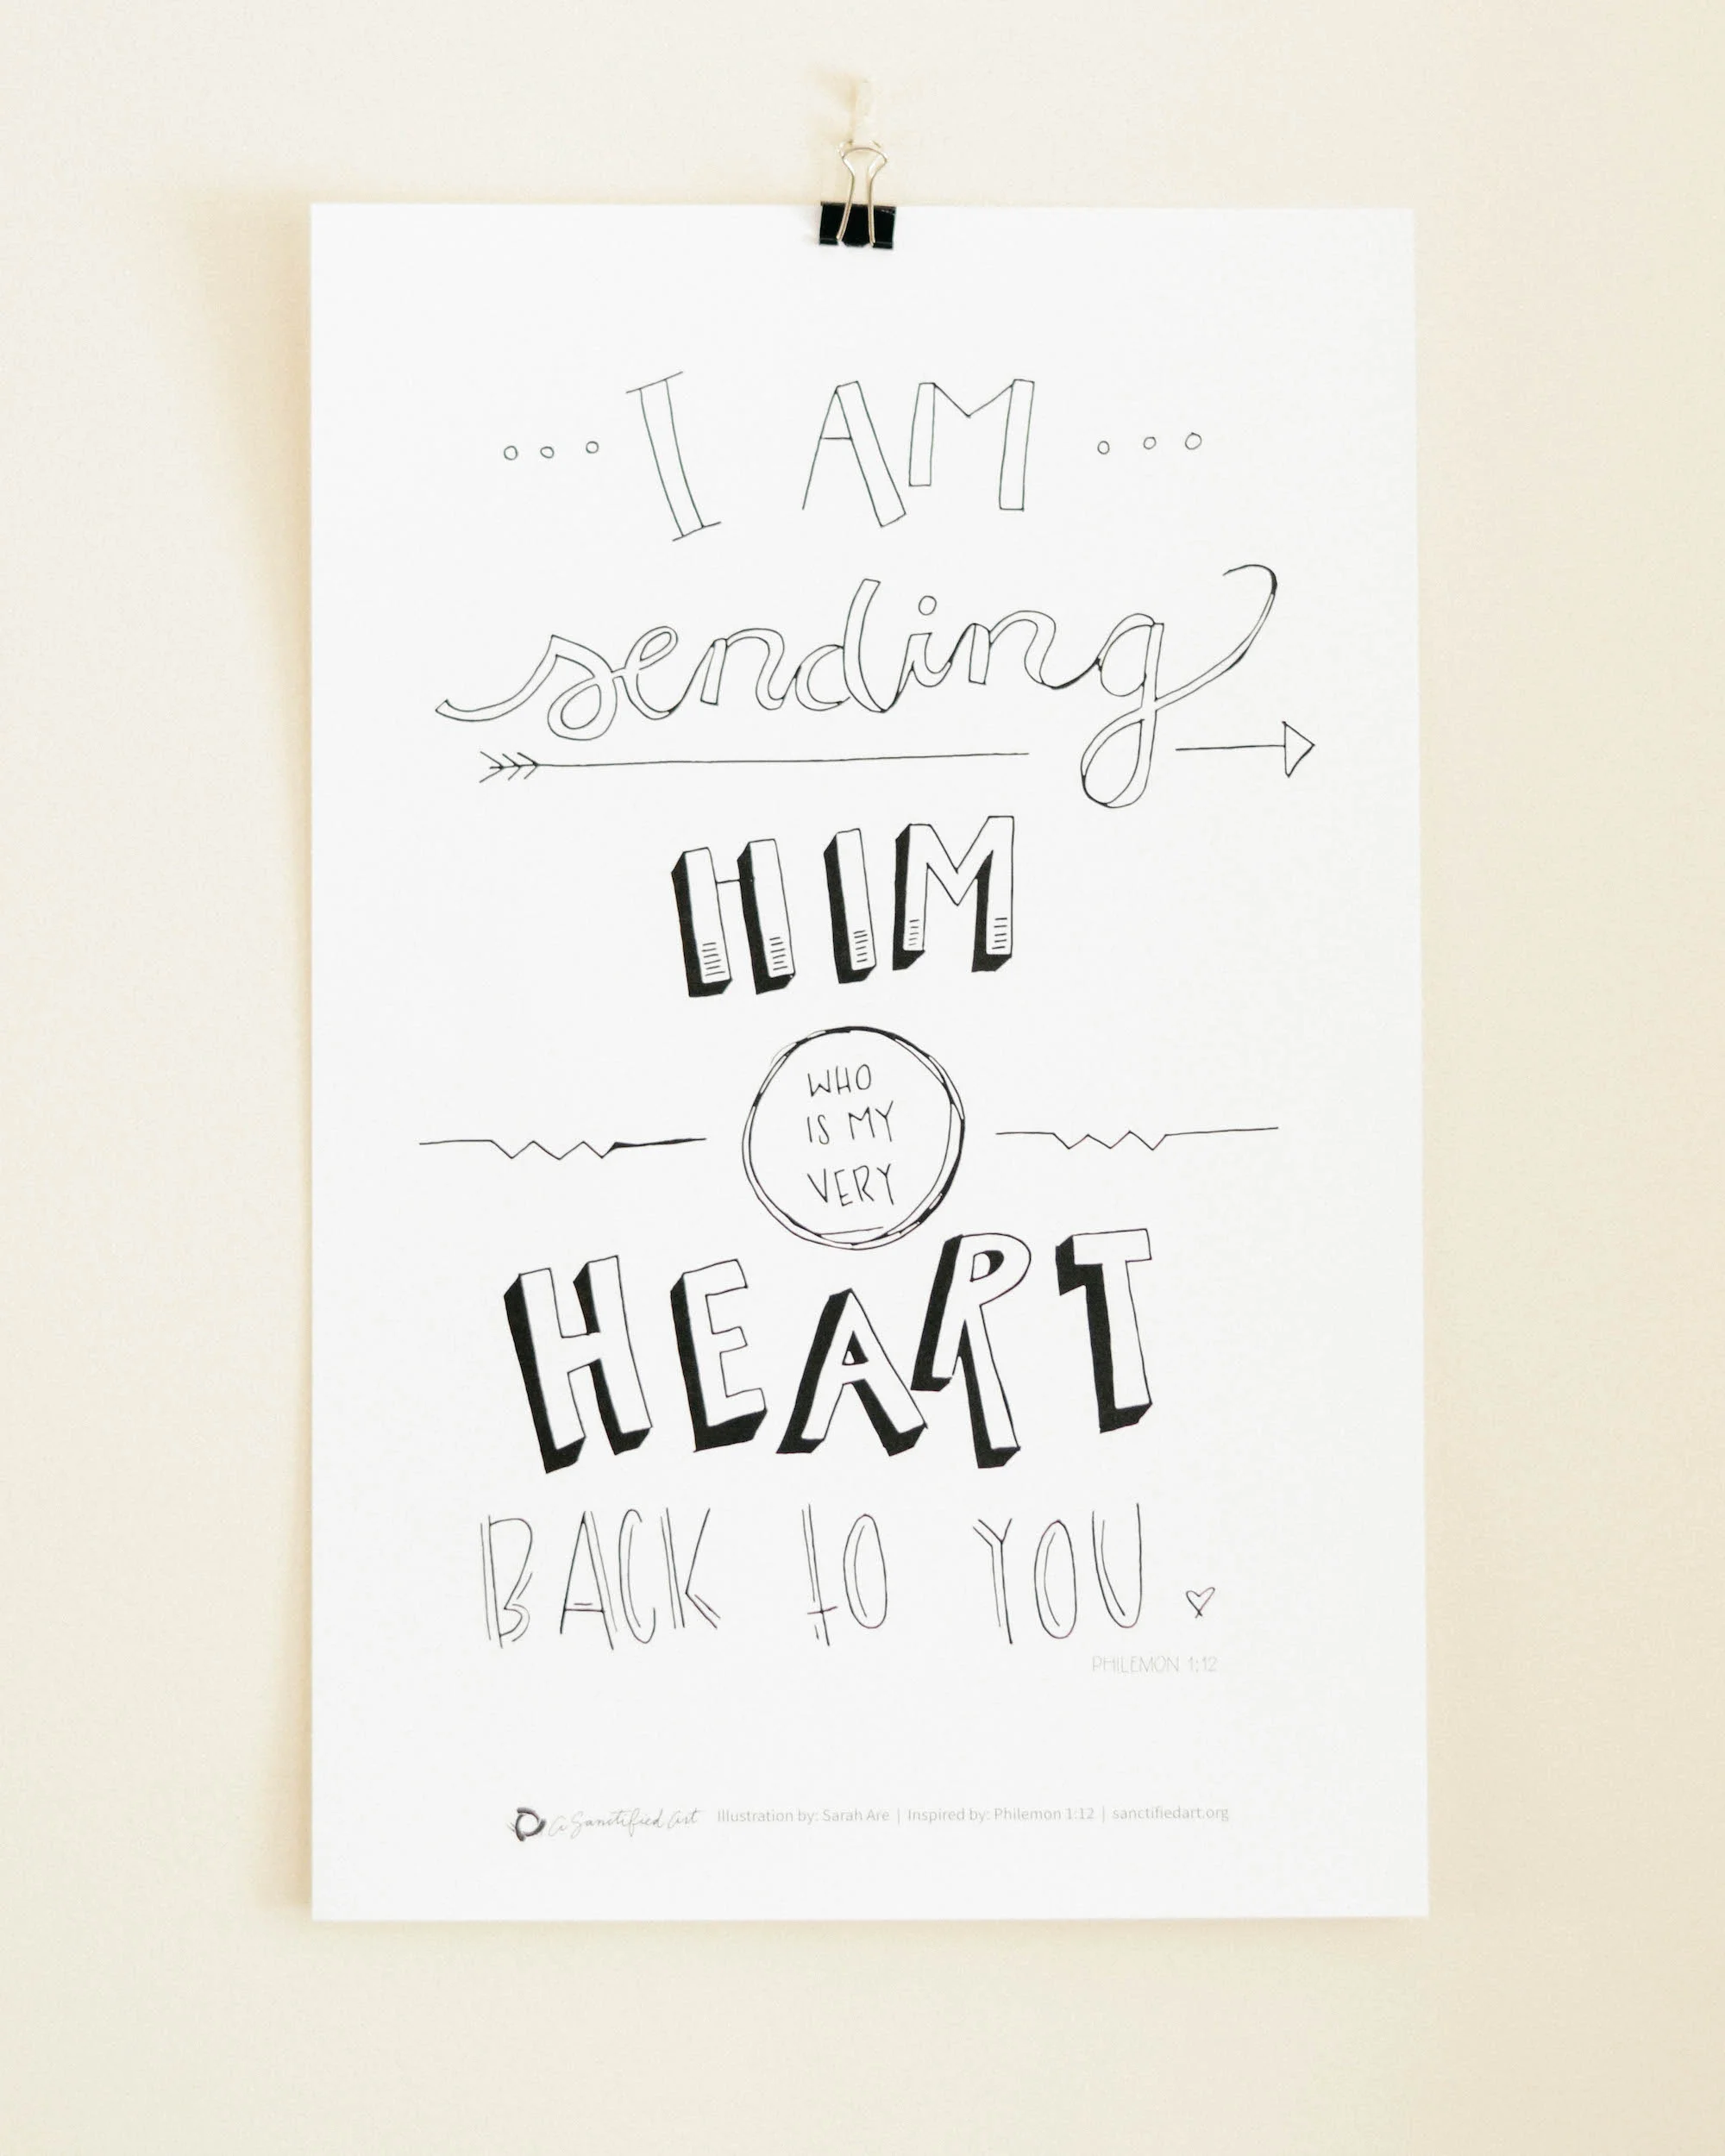 I AM
sending
HIM
WHO
IS MY
VERY
HEART
BACK to YOU.
PHILEMON 1:12
a Sanctified Art Illustration by: Sarah Are | Inspired by: Philemon 1:12 | sanctifiedart.org